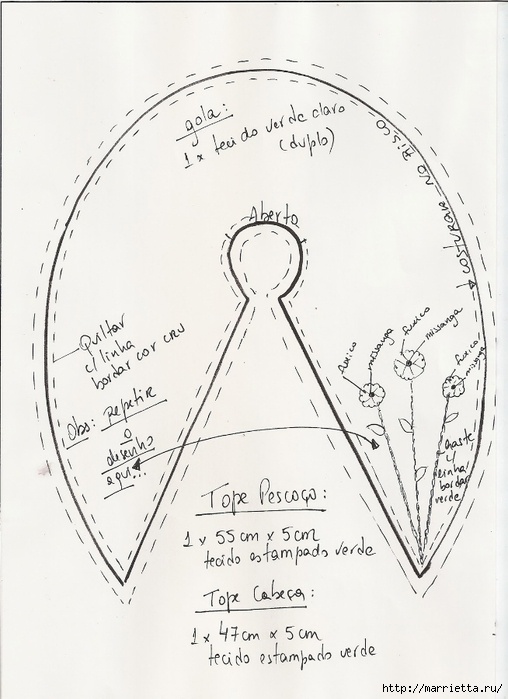 gola:
1 x tecido verde claro
(duplo)
COSTURAR NO RISCO
Aberto
Quiltar
c/ linha
bordar cor cru
Obs: Repetir
o
desenho
aqui...
fuxico
missanga
fuxico
missanga
fuxico
missanga
haste
c/
linha
bordar
verde
Tope Pescoço:
1 x 55 cm x 5 cm
tecido estampado verde
Tope Cabeça:
1 x 47 cm x 5 cm
tecido estampado verde
http://marrietta.ru/